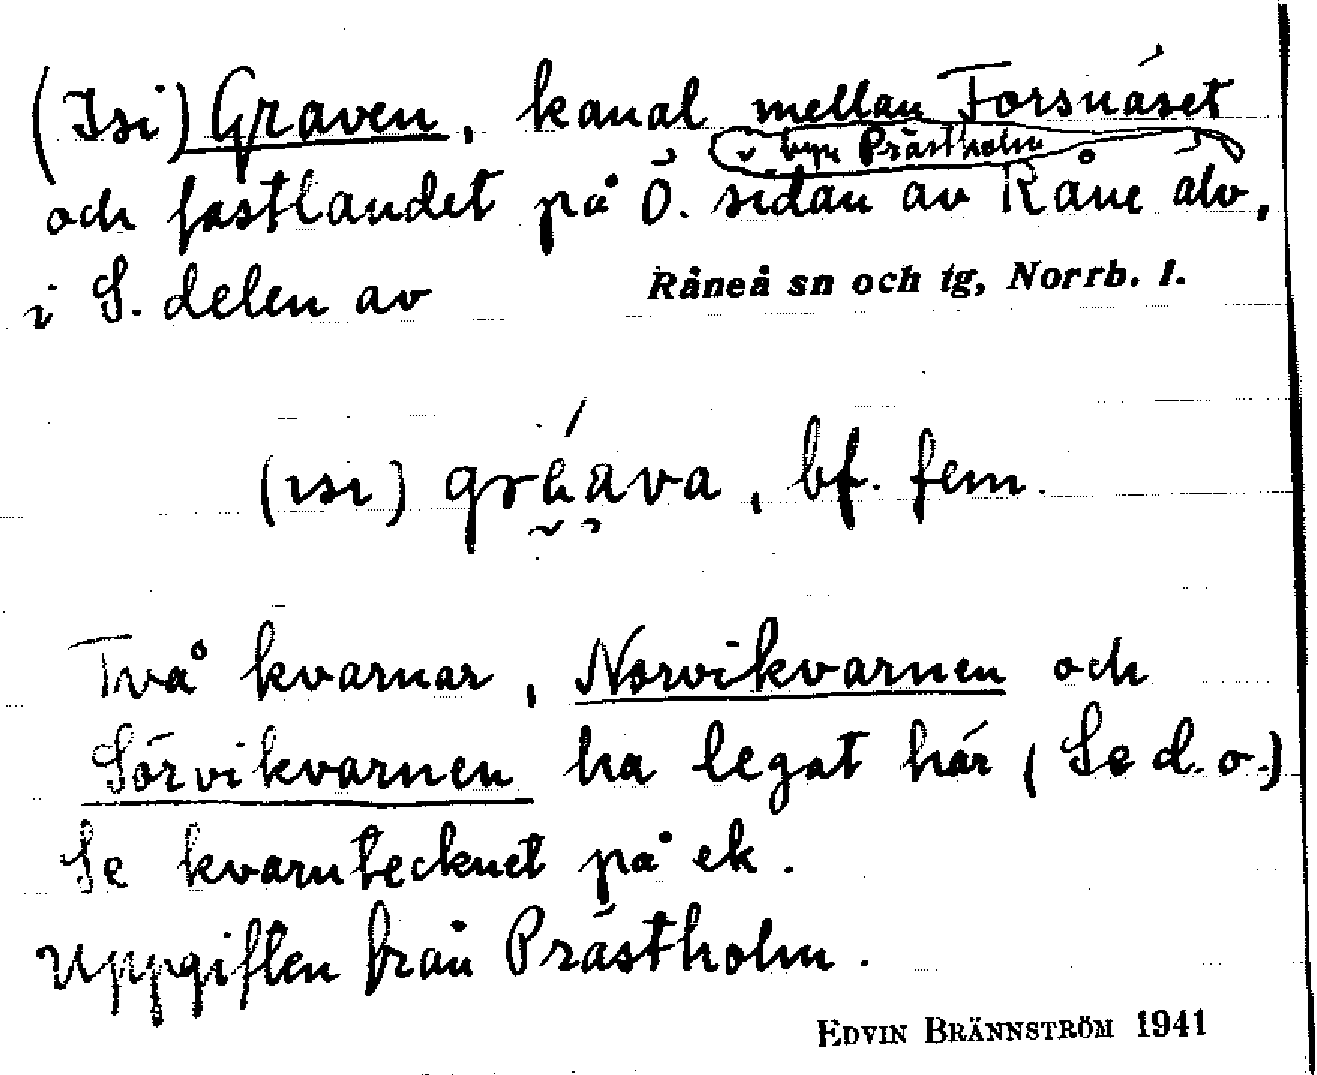 (Isi) Graven, kanal mellan Forsnäset
i byn Prästholm
och fastlandet på Ö. sidan av Råne älv,
i S. delen av Råneå sn och tg, Norrb. l.
(ısı) gráava, bf. fem.
Två kvarnar, Norvikvarnen och
Sörvikvarnen ha legat här (Se d. o.)
Se kvarntecknet på ek.
Uppgiften från Prästholm.
EDVIN BRÄNNSTRÖM 1941